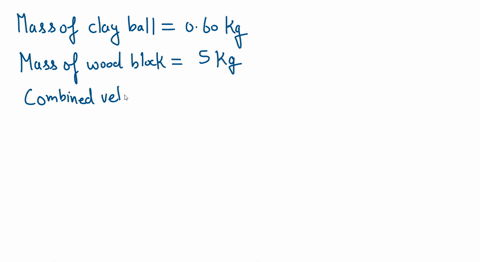 Mass of clay ball = 0.60 Kg
Mass of wood block = 5 Kg
Combined vel